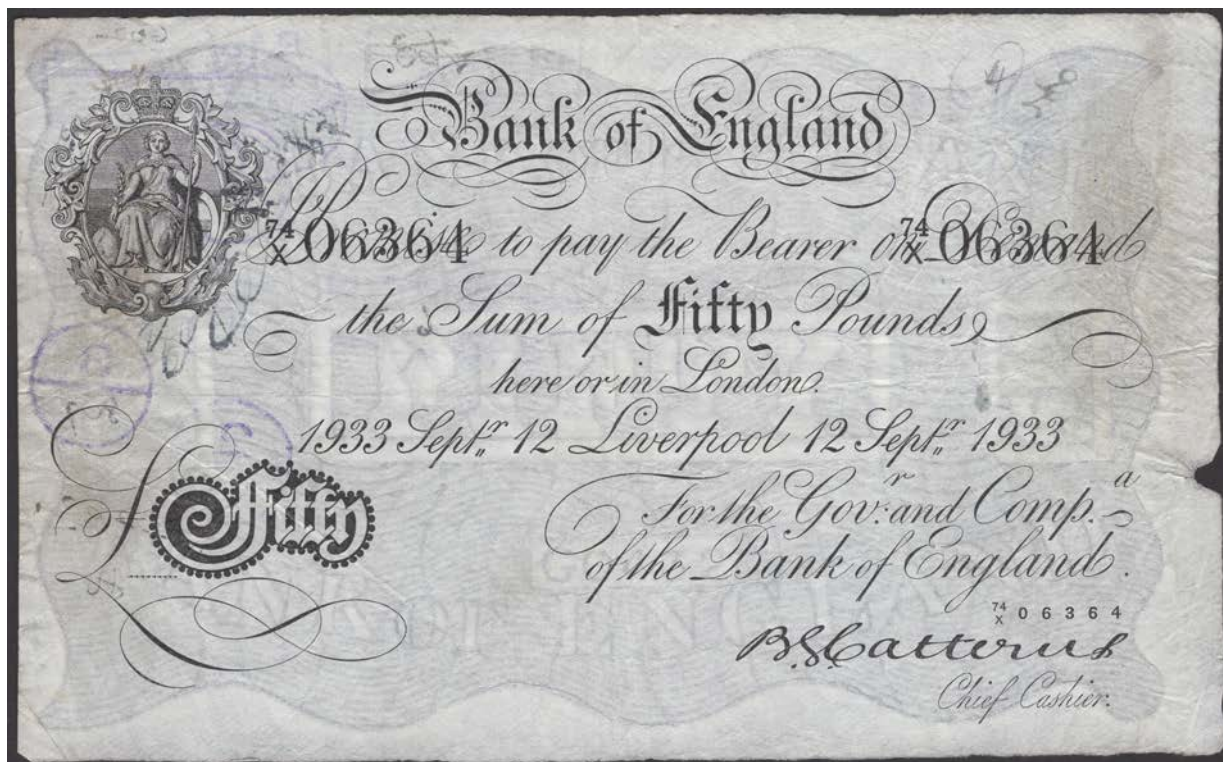 Bank of England
74 X 06364 74 X 06364
I Promise to pay the Bearer on Demand
the Sum of Fifty Pounds
here or in London.
1933 Septr. 12 Liverpool 12 Septr. 1933
For the Govr. and Compa.
of the Bank of England.
£ Fifty
74 X 06364
B.G. Catterns
Chief Cashier.